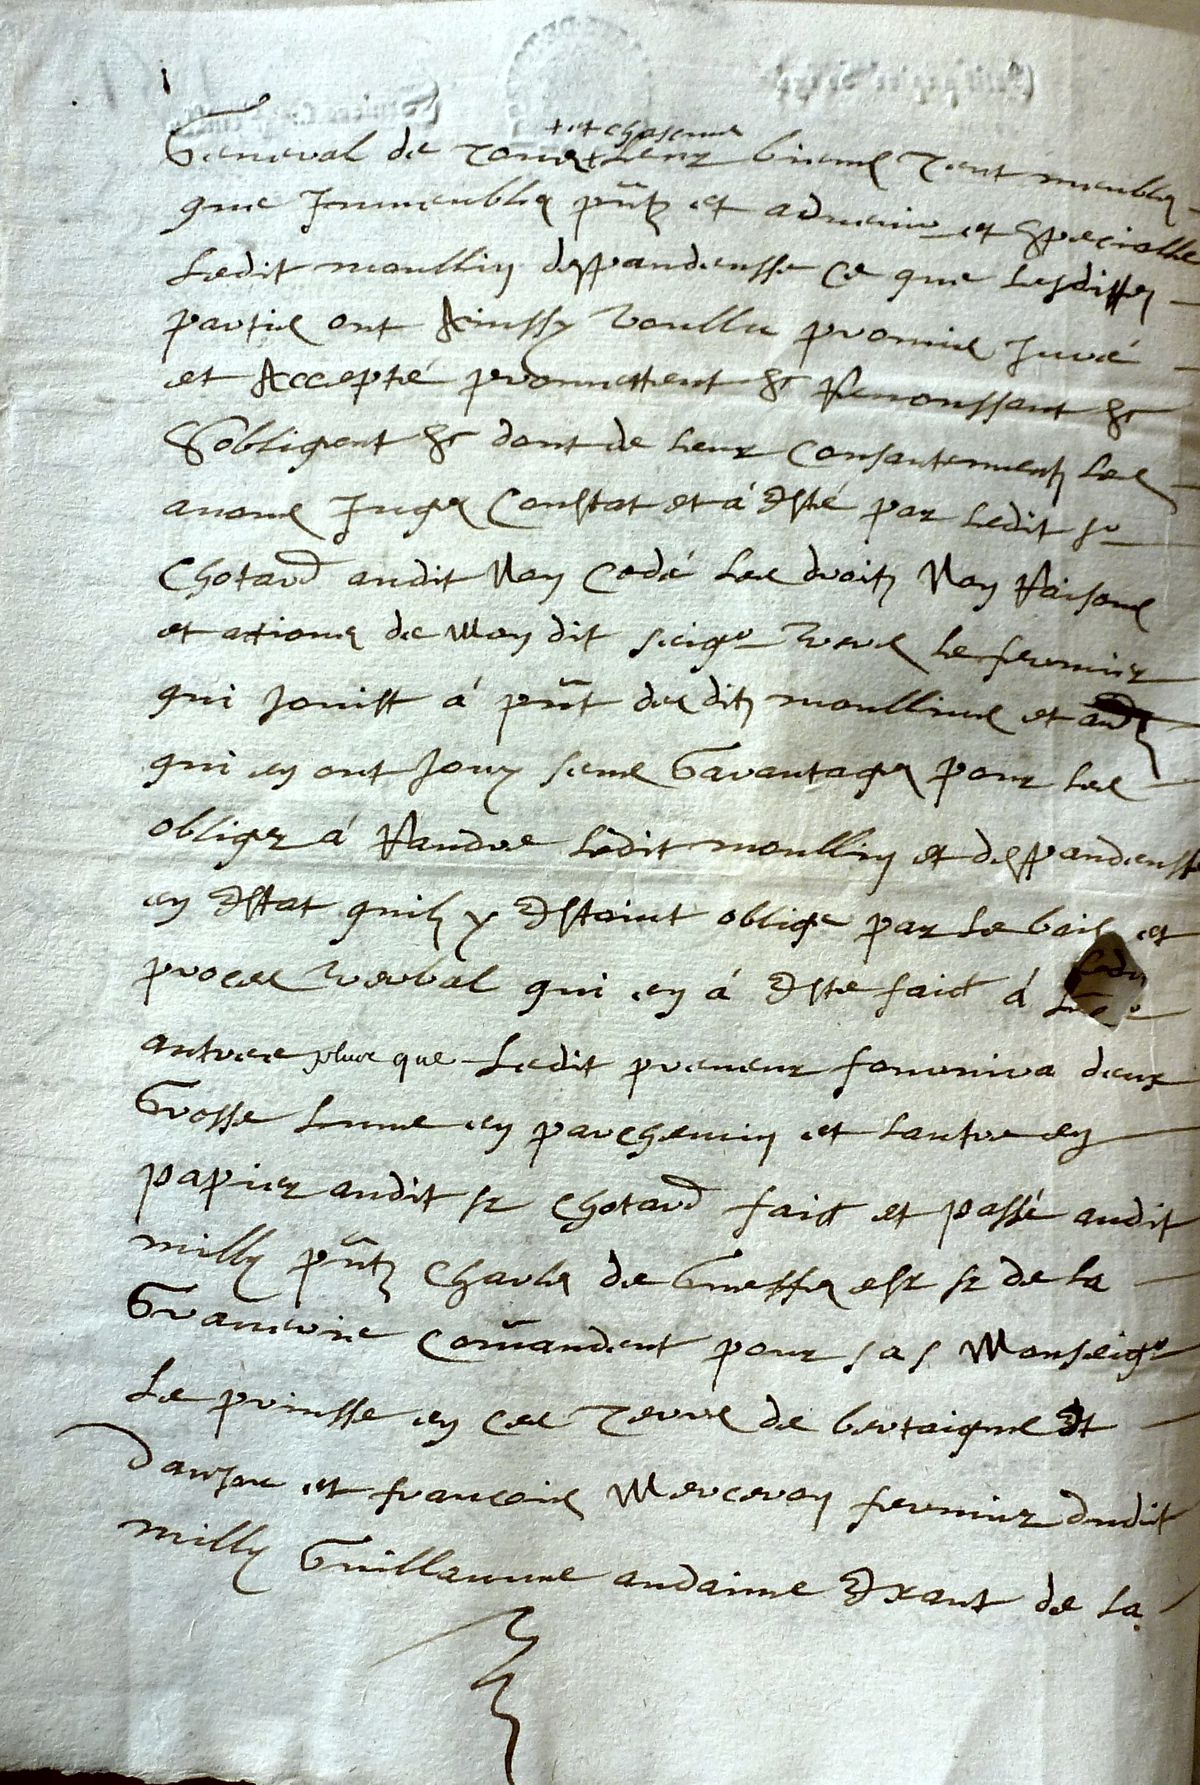 + et chascune
General de tous + Leurs biens tent meubles
que Immeubles pntz et advenir et Speciallem
Ledit moullin despandensse Ce que Lesdittes
parties ont Ainssy voullu promis Juré
et Accepté promettent &c Renonssent &c
S'obligent &c dont de Leur Consantement Les
avons Juges Constat et à Esté par Ledit sr
Chotard audit Nau Cedé Les droitz Nom Raisons
et actions de Mondit seigr vers Le fermier
qui Jouist á pnt desditz moullins et aux
qui en ont Jouy sens Garantages pour Les
obliger á Randre Ledit moullin et despandensse
en Estat quilz y Estoint obligé par Le bail et
proces verbal qui en á Esté faict á
antree plus que Ledit preneur fournira deux
Grosse Lune en parchemin et Lautre en
papier audit sr Chotard faict et passé audit
milly pntz Charles de Gueffes esr sr de La
Graverie Comandent pour sas Monseigr
Le prinsse en ces Terres de bretaigne Et
Danjou et francois Merceron fermier dudit
milly Guillaume audaime Exant de La